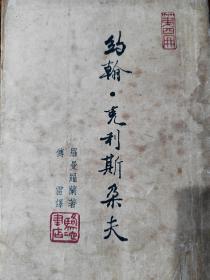 第四冊
約翰·克利斯朵夫
羅曼羅蘭著
傅雷譯
駱駝書店